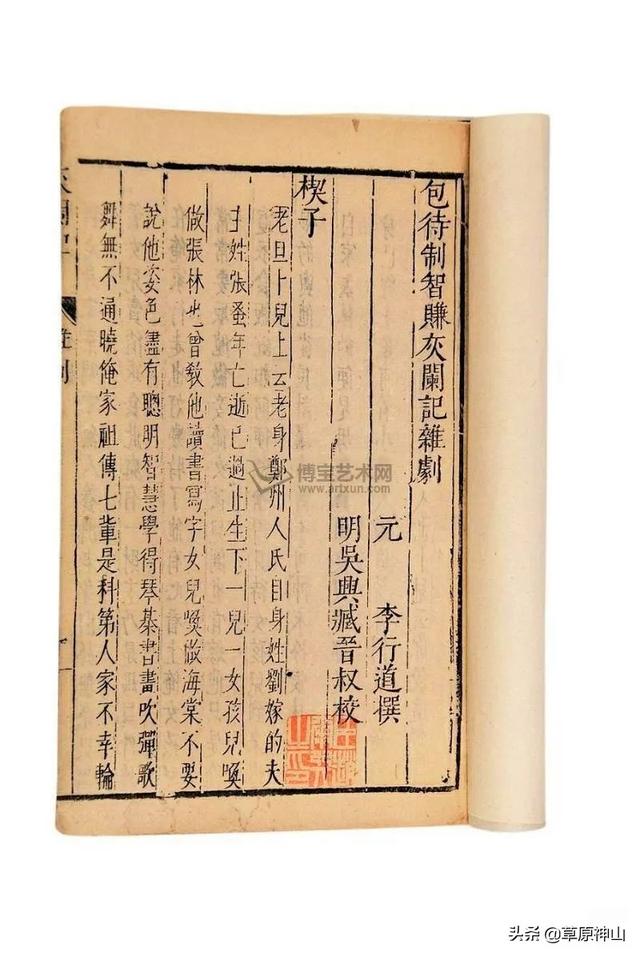 包待制智賺灰闌記雜劇
元 李行道撰
明吳興臧晉叔校
楔子
老旦卜兒上云老身鄭州人氏自身姓劉嫁的夫
主姓張蚤年亡逝已過止生下一兒一女孩兒喚
做張林也曾敎他讀書寫字女兒喚做海棠不要
說他姿色儘有聰明智慧學得琴棊書畫吹彈歌
舞無不通曉俺家祖傳七輩是科第人家不幸輪
博宝艺术网
www.artxun.com
头条 @草原神山